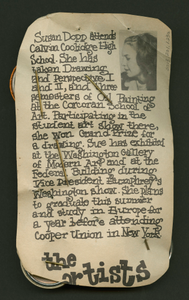 Susan Dopp attends
Calvin Coolidge High
School. She has
taken Drawing
and Perspective I
and II, and three
semesters of Oil Painting
at the Corcoran School of
Art. Participating in the
student art show there,
she won Grand Print for
a drawing. Sue has exhibited
at the Washington Gallery
of Modern Art and at the
Federal Building during
Vice President Humphrey's
Washington show. She plans
to graduate this summer
and study in Europe for
a year before attending
Cooper Union in New York
the
artists